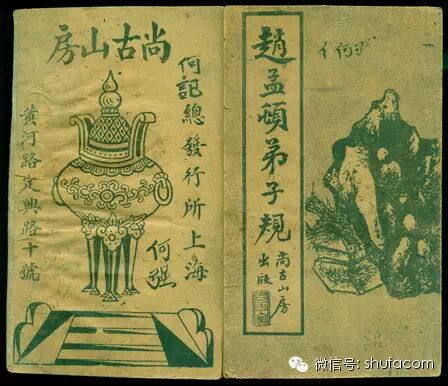 趙孟頫弟子規
尚古山房
出版
尚古山房
何記總發行所上海
黃河路定興路十號
何强
微信号: shufacom